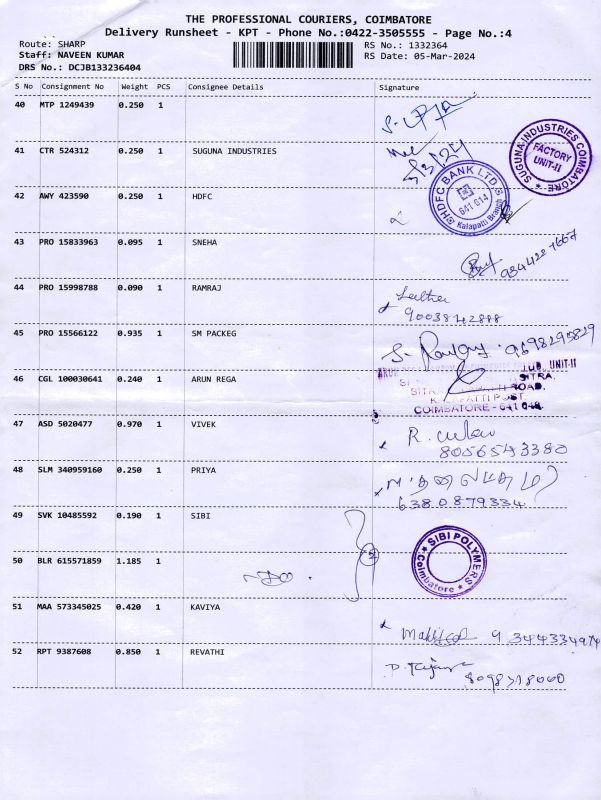 THE PROFESSIONAL COURIERS, COIMBATORE
Delivery Runsheet - KPT - Phone No.:0422-3505555 - Page No.:4
Route: SHARP
RS No.: 1332364
Staff: NAVEEN KUMAR
RS Date: 05-Mar-2024
DRS No.: DCJB133236404
S No Consignment No Weight PCS Consignee Details Signature
40 MTP 1249439 0.250 1
41 CTR 524312 0.250 1 SUGUNA INDUSTRIES
5/3/24
SUGUNA INDUSTRIES COIMBATORE
FACTORY
UNIT-II
42 AWY 423590 0.250 1 HDFC
HDFC BANK LTD.
641 014
Kalapatti Branch
43 PRO 15833963 0.095 1 SNEHA
44 PRO 15998788 0.090 1 RAMRAJ
9003842888
45 PRO 15566122 0.935 1 SM PACKEG
9698295829
46 CGL 100030641 0.240 1 ARUN REGA
ARUN UNIT-II
SITRA.
SITRA ROAD.
POST
COIMBATORE - 641 048.
47 ASD 5020477 0.970 1 VIVEK
8056543380
48 SLM 340959160 0.250 1 PRIYA
6380879334
49 SVK 10485592 0.190 1 SIBI
50 BLR 615571859 1.185 1
SIBI POLYMERS
Coimbatore
51 MAA 573345025 0.420 1 KAVIYA
52 RPT 9387608 0.850 1 REVATHI